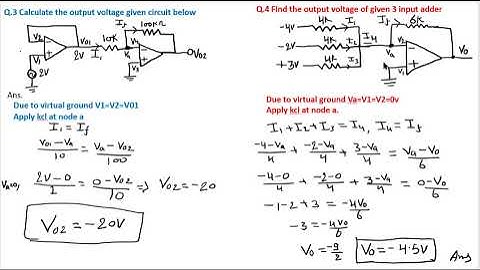 Q.3 Calculate the output voltage given circuit below
If
100KΩ
V2
V01
10K
Va
V02
2V
I1
V1
2V
Ans.
Due to virtual ground V1=V2=V01
Apply kcl at node a
I1 = If
V01-Va/10 = Va-V02/100
Va=0, 2V-0/2 = 0-V02/10 => V02=-20
V02 = -20V
Q.4 Find the output voltage of given 3 input adder
If
6K
-4V
4K
I1
-2V
4K
I2
I4
V2
Va
+3V
4K
I3
V1
V0
Due to virtual ground Va=V1=V2=0v
Apply KCL at node a.
I1+I2+I3=I4, I4=If
-4-Va/4 + -2-Va/4 + 3-Va/4 = Va-V0/6
-4-0/4 + -2-0/4 + 3-Va/4 = 0-V0/6
-1-2+3 = -4V0/6
-3 = -4V0/6
V0 = -9/2
V0=-4.5V
Ans